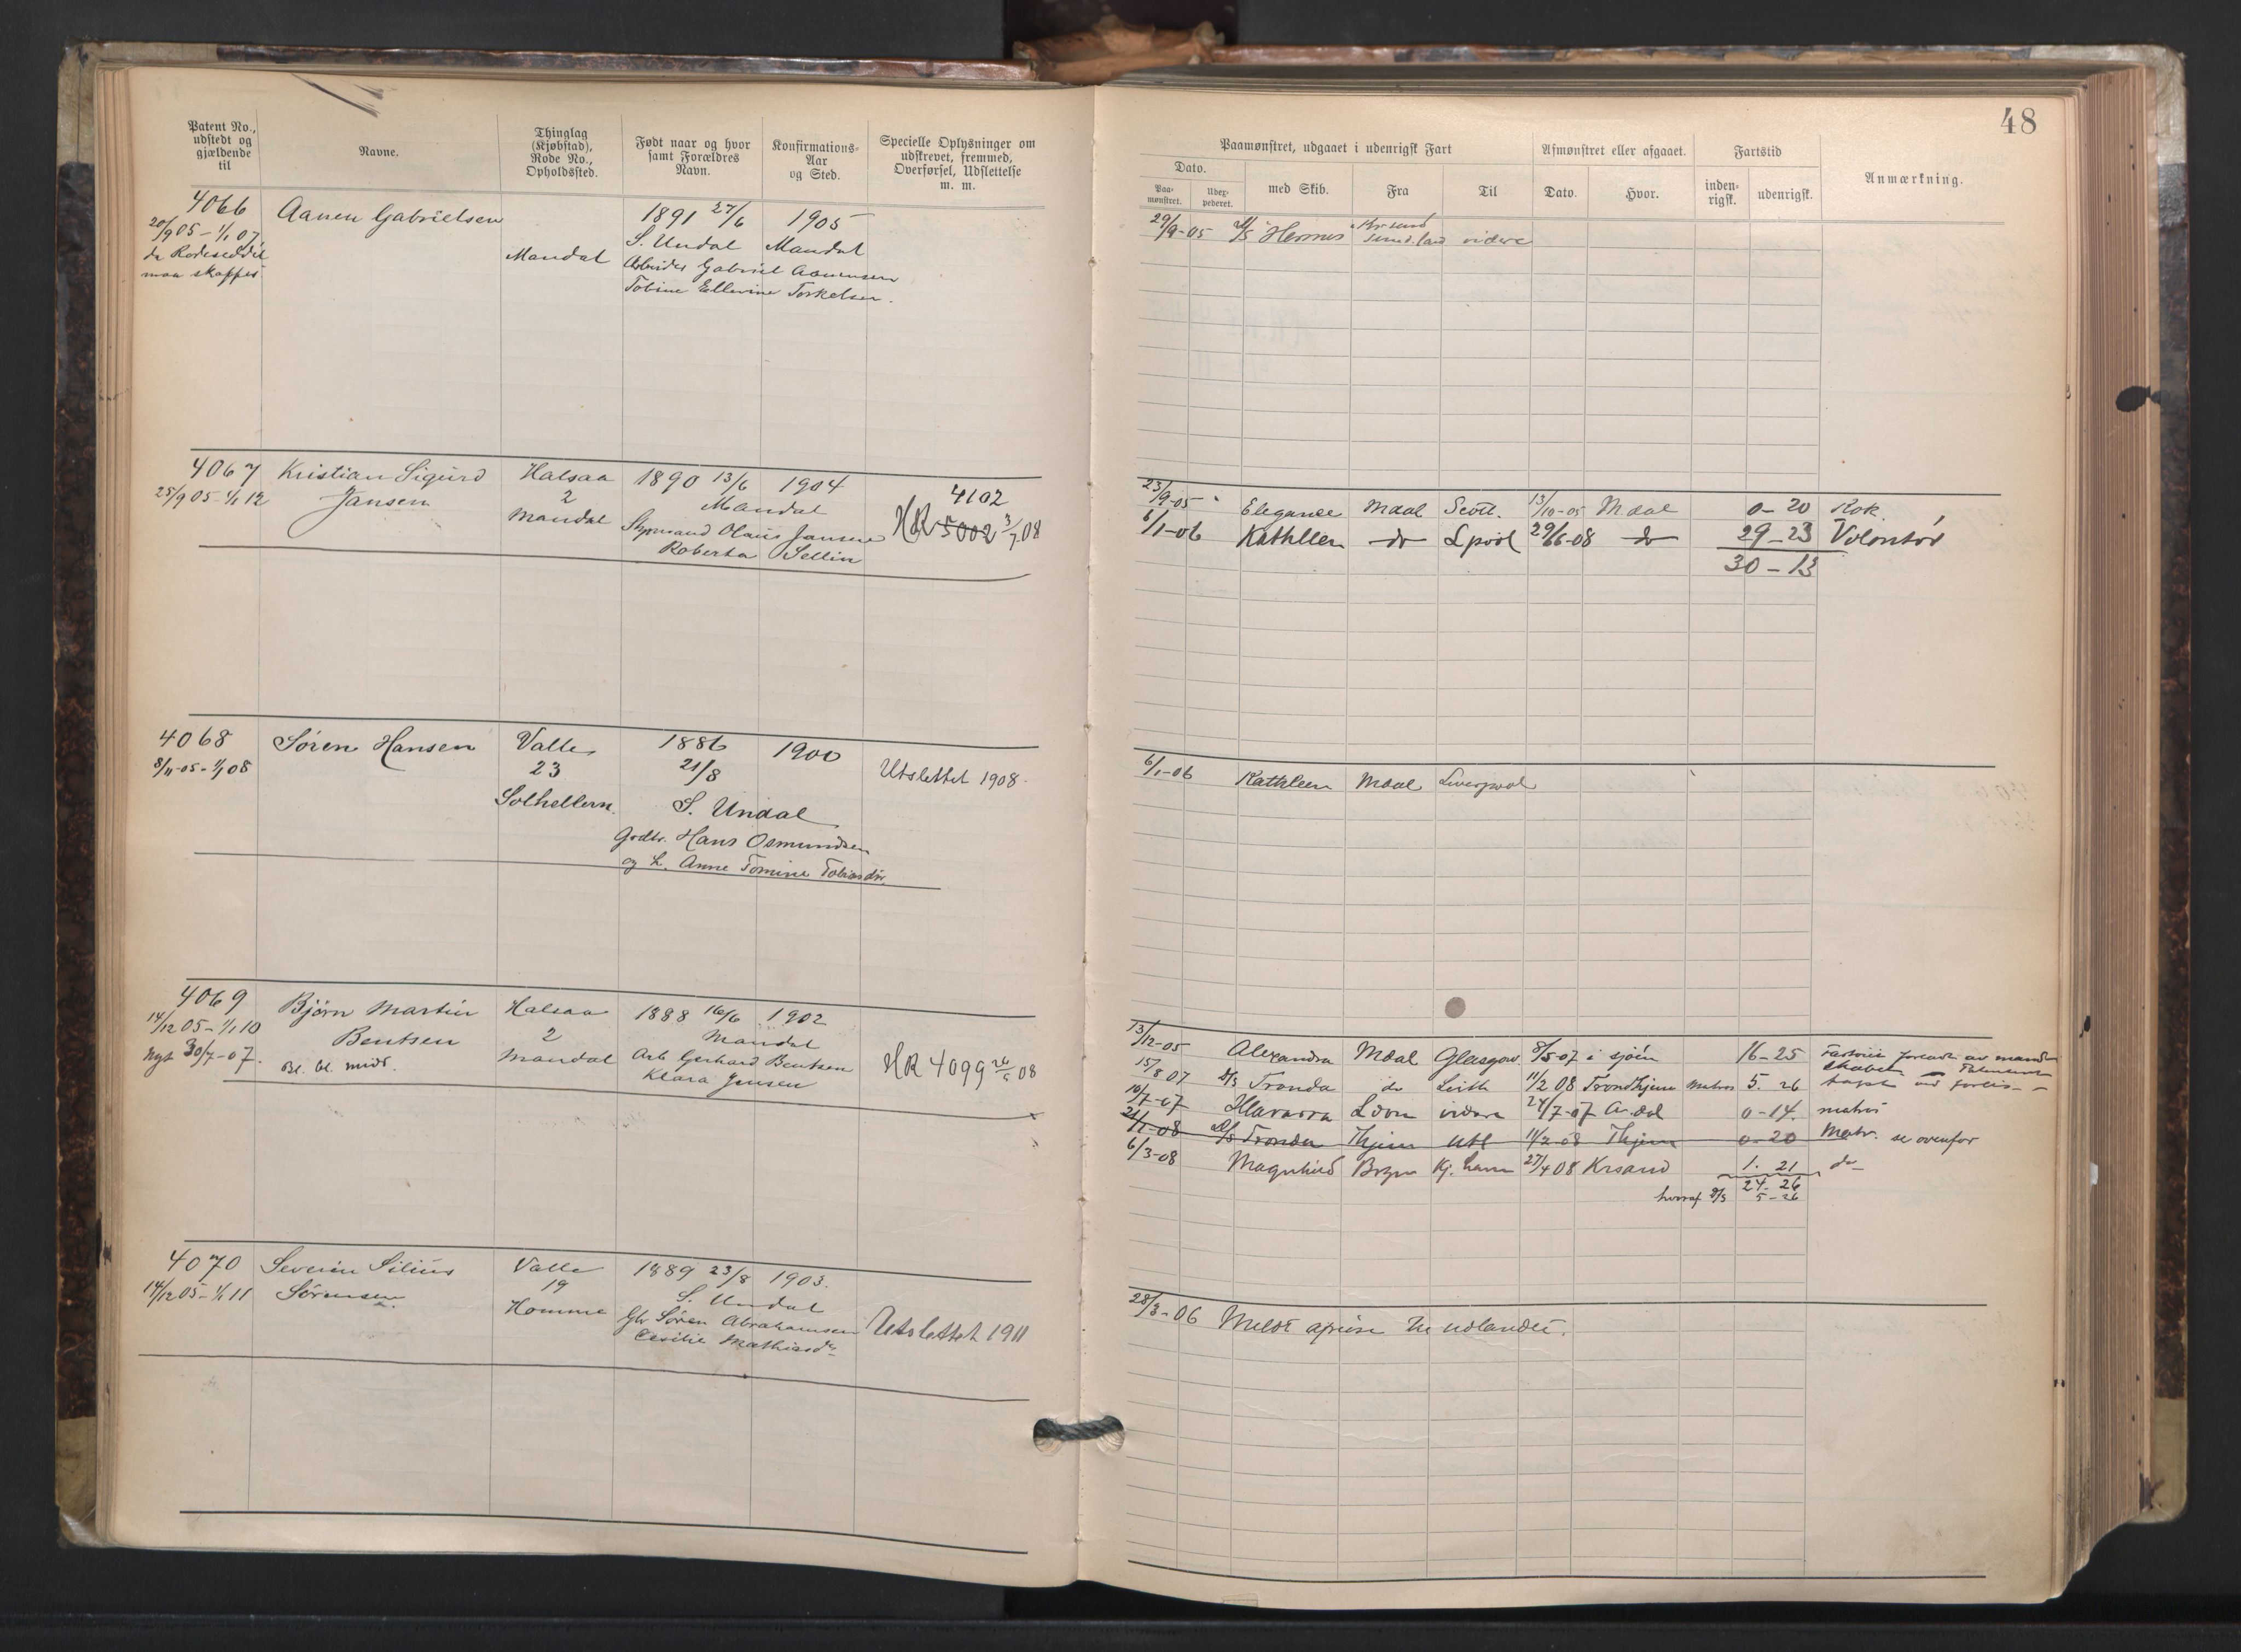 48
Patent No., udstedt og gjældende til
Navne.
Thinglag (Kjøbstad), Rode No., Opholdssted.
Født naar og hvor samt Forældres Navn.
Konfirmations-Aar og Sted.
Specielle Oplysninger om udskrevet, fremmed, Overførsel, Udslettelse m. m.
Paamønstret, udgaaet i udenrigsk Fart
Afmønstret eller afgaaet.
Fartstid
Anmærkning.
Dato.
Paa-mønstret.
Udex-pederet.
med Skib.
Fra
Til
Dato.
Hvor.
inden-rigsk.
udenrigsk.
4066 Aanen Gabrielsen 1891 27/6 1905
20/9 05 – 1/1 07 S. Undal Mandal
da Rodeseddel Mandal Arbeider Gabriel Aanensen
maa skaffes Tobine Ellevine Torkelsen.
29/9-05 D/S Hermes
4067 Kristian Sigurd Halsaa 1890 13/6 1904 4102
25/9 05 – 1/1 12 Jansen 2 Mandal HR 5002 3/7 08
Mandal Styrmand Olaus Jansen
Roberta Sellin
23/9-05 Elegance Mdal Scott. 13/10-05 Mdal 0–20 Kok
6/1-06 Kathleen do Lpool 29/6-08 do 29–23 Volontør
30–13
4068 Søren Hansen Valle 1886 1900
8/11-05 – 1/1 08 23 21/8 Utslettet 1908
Solhellern S. Undal
Grdbr. Hans Osmundsen
og h. Anne Tomine Tobiasdtr.
6/1-06 Kathleen Mdal Liverpool
4069 Bjørn Martin Halsaa 1888 16/6 1902
14/12 05 – 1/1 10 Bentsen 2 Mandal
Nyt 30/7-07. Bl. bl. midt. Mandal Arb Gerhard Bentsen HR 4099 26/5 08
Klara Jensen
13/12-05 Alexandra Mdal Glasgow 8/5-07 i sjøen 16–25
15/8 07 D/S Tronda do Leith 11/2 08 Trondhjem Matros 5. 26
10/7-07 Havarra Ldon videre 24/7-07 Ar.dal 0–14. matros
21/1-08 D/S Tronda Thjem Utl 11/2-08 Thjem 0–20 Matr. se ovenfor
6/3-08 Magnhild Brgn Kj.havn 27/4 08 Krsand 1. 21 do
24–26
hvoraf D/S 5–26
4070 Severin Silius Valle 1889 23/8 1903.
14/12 05 – 1/1 11 Sørensen 19 S. Undal
Homme Gbr Søren Abrahamsen Utslettet 1911
Cecilie Mathiasdtr
28/3-06 Meldt afreise til udlandet.